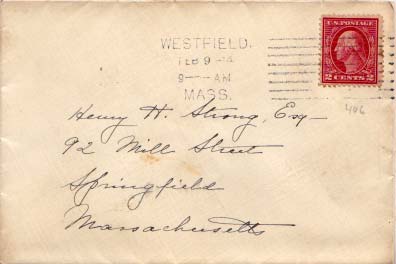 WESTFIELD.
FEB 9
9 AM
MASS.
U.S. POSTAGE
2 CENTS 2
406
Henry H. Strong, Esq-
92 Mill Street
Springfield
Massachusetts